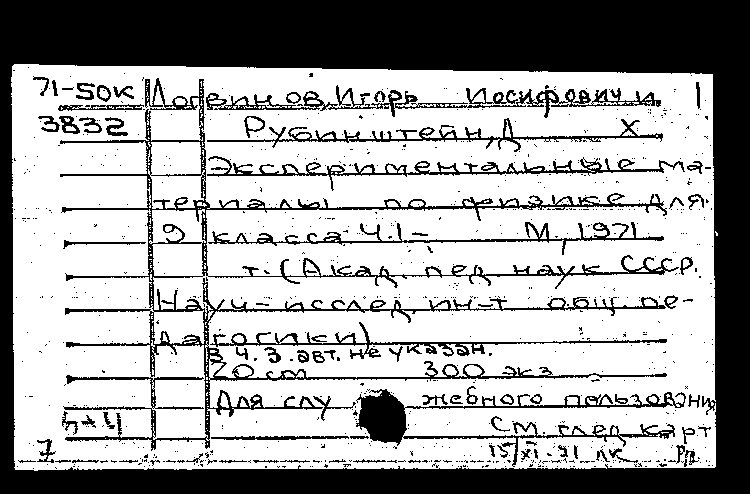 71-50к Логвинов, Игорь Иосифович и 1
3832 Рубинштейн, Д Х
Экспериментальные ма-
териалы по физике для
9 класса Ч.1- М, 1971
т. (Акад. пед наук СССР.
Науч-исслед. ин-т общ пе-
дагогики)
В Ч.3. авт. не указан.
20 см 300 экз
Для служебного пользования
См. след карт
7 15/XI-71 лк